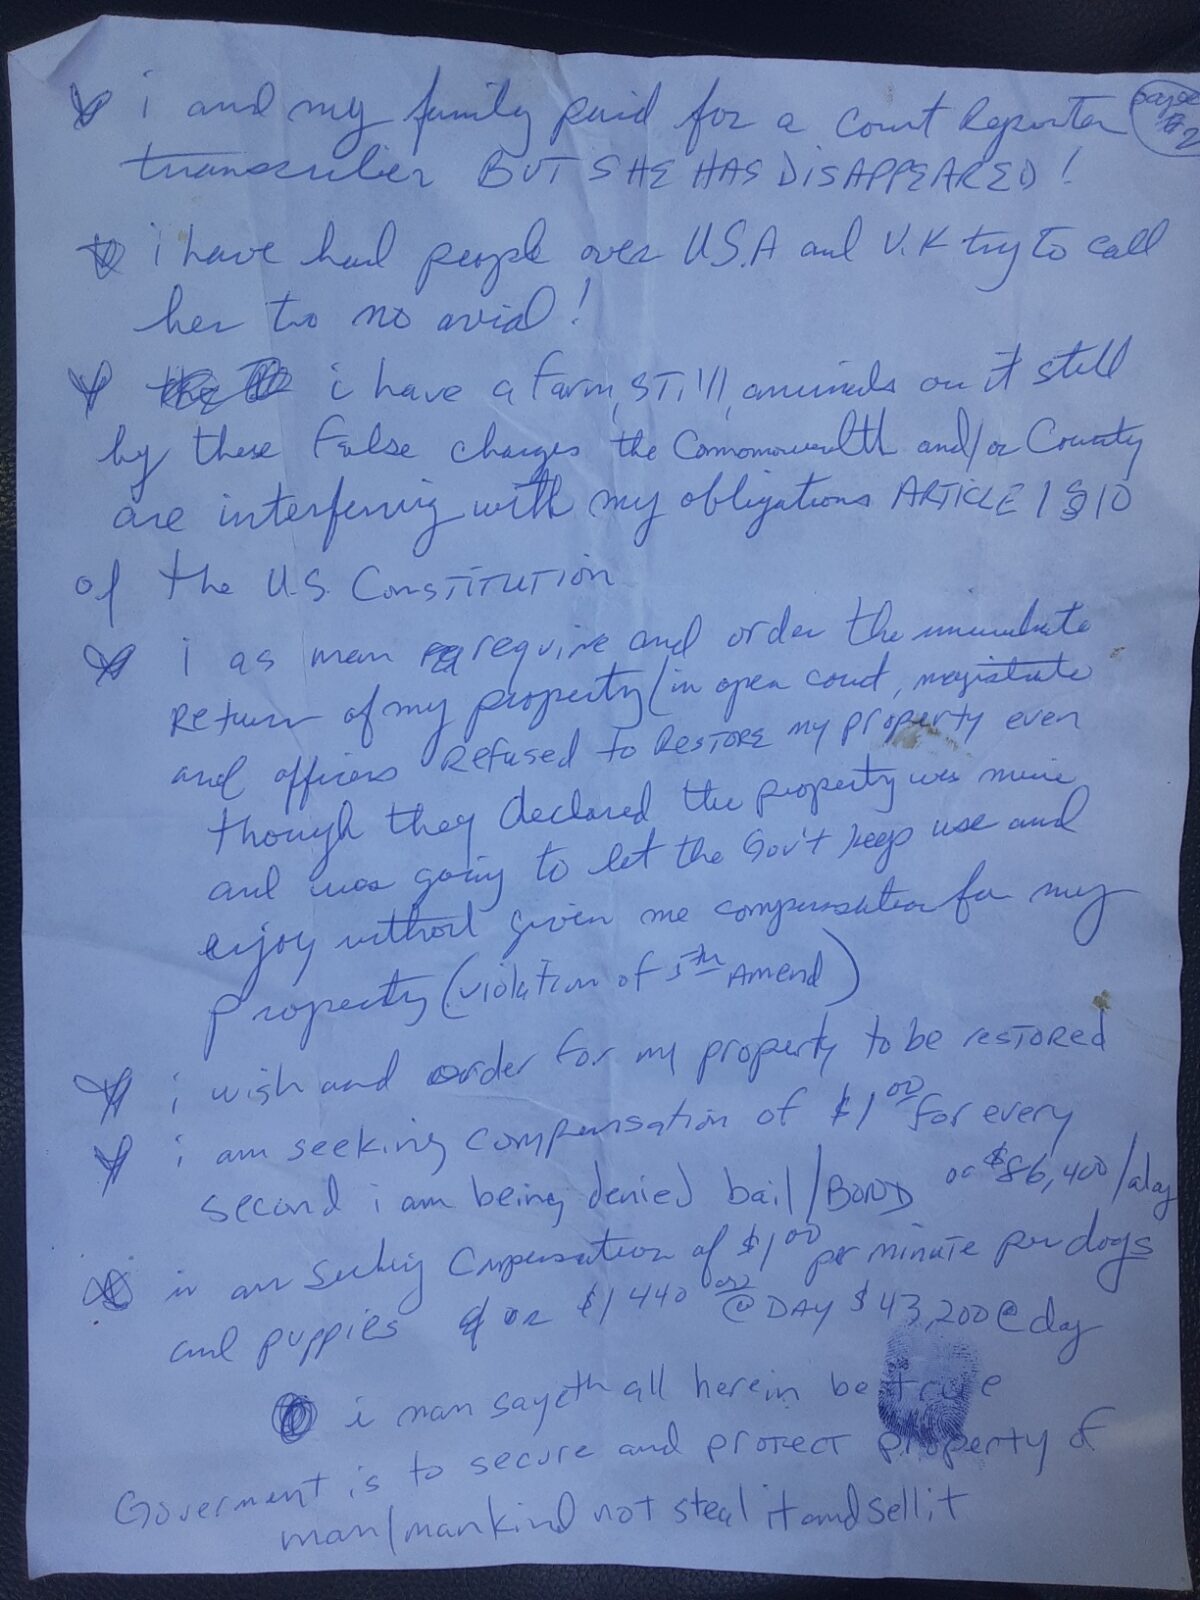 page # 2
i and my family paid for a court Reporter
transcriber BUT SHE HAS DISAPPEARED!
i have had people over U.S.A and U.K try to call
her to no avial!
i have a farm, STill, animals on it still
by these False charges the Commonwealth and/or County
are interfering with my obligations ARTICLE 1 § 10
of the U.S. CONSTITUTION
i as man require and order the immediate
Return of my property (in open court, magistrate
and officers Refused to RESTORE my property even
though they declared the property was mine
and was going to let the Gov't keep use and
enjoy without given me compensation for my
Property (violation of 5th Amend)
i wish and order for my property to be restored
i am seeking compensation of $1.00 for every
second i am being denied bail/BOND or $86,400/day
i am seeking Compensation of $1.00 per minute per dogs
and puppies or $1440 @ DAY $43,200 @ day
i man sayeth all herein be true
Goverment is to secure and protect property of
man/mankind not steal it and sell it